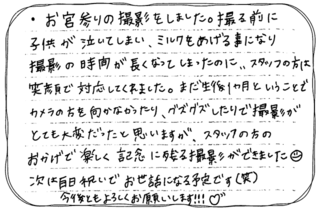 ・お宮参りの撮影をしました。撮る前に
子供が泣いてしまい、ミルクをあげる事になり
撮影の時間が長くなってしまったのに、スタッフの方は
笑顔で対応してくれました。まだ生後1ヶ月ということで
カメラの方を向かなかったり、グズグズしたりで撮影が
とても大変だったと思いますが、スタッフの方の
おかげで楽しく記念に残る撮影ができました☺
次は百日祝いでお世話になる予定です(笑)
今後ともよろしくお願いします!!!♡